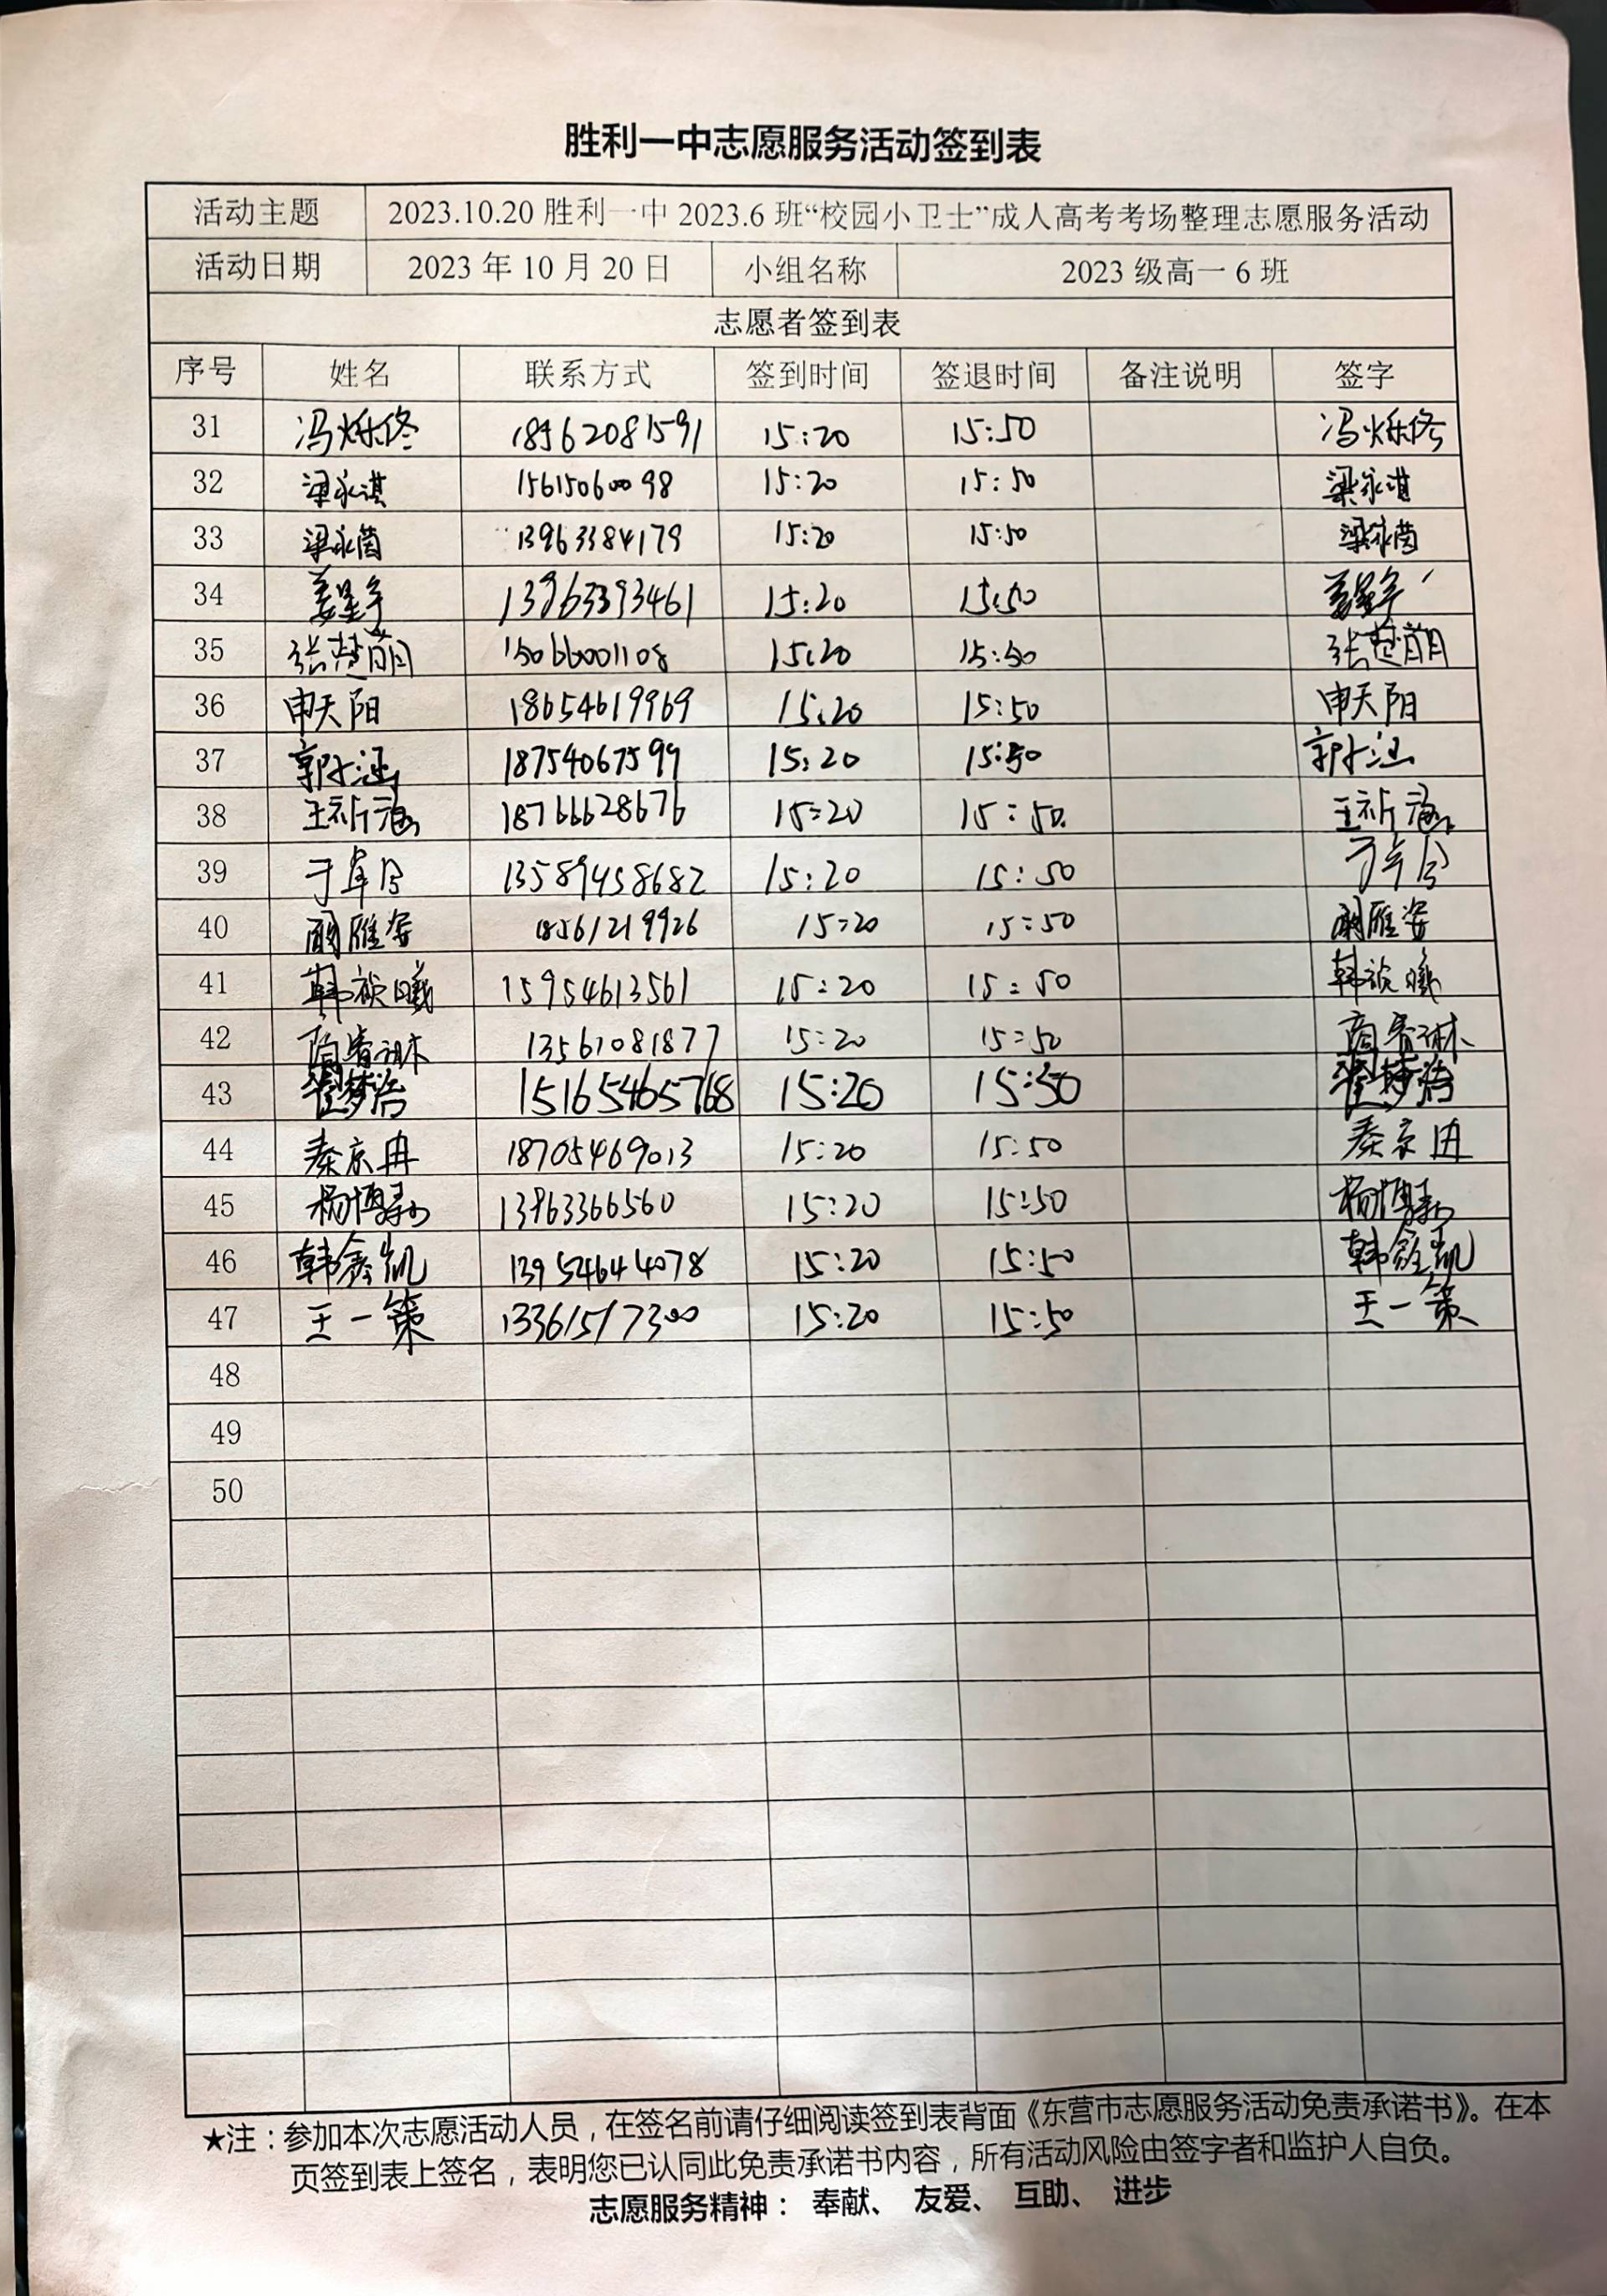 胜利一中志愿服务活动签到表
活动主题 2023.10.20 胜利一中 2023.6 班“校园小卫士”成人高考考场整理志愿服务活动
活动日期 2023 年 10 月 20 日 小组名称 2023 级高一 6 班
志愿者签到表
序号 姓名 联系方式 签到时间 签退时间 备注说明 签字
31 冯烁佟 18962081591 15:20 15:50 冯烁佟
32 梁永淇 15615060098 15:20 15:50 梁永淇
33 梁永茵 13963384179 15:20 15:50 梁永茵
34 姜星宇 13963393461 15:20 15:50 姜星宇
35 张楚萌 15066001108 15:20 15:50 张楚萌
36 申天阳 18654619969 15:20 15:50 申天阳
37 郭小涵 18754067599 15:20 15:50 郭小涵
38 王祈涵 18766628676 15:20 15:50. 王祈涵
39 13589458682 15:20 15:50
40 雁姿 18561219926 15:20 15:50 雁姿
41 韩祯曦 15954613561 15:20 15:50 韩祯曦
42 13561081877 15:20 15:50
43 15165465768 15:20 15:50
44 秦京冉 18705469013 15:20 15:50 秦京冉
45 杨博 13963366560 15:20 15:50 杨博
46 韩鑫凯 13954644078 15:20 15:50 韩鑫凯
47 王一策 13361517300 15:20 15:50 王一策
48
49
50
★注：参加本次志愿活动人员，在签名前请仔细阅读签到表背面《东营市志愿服务活动免责承诺书》。在本
页签到表上签名，表明您已认同此免责承诺书内容，所有活动风险由签字者和监护人自负。
志愿服务精神： 奉献、 友爱、 互助、 进步